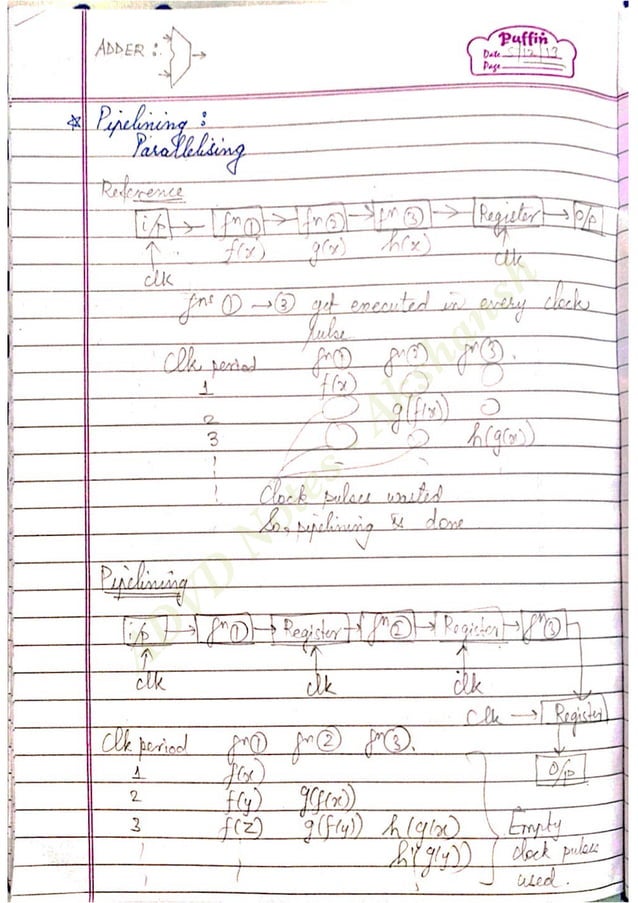 ADDER :
Puffin
Date 5/12/13
Page
* Pipelining :
Parallelising
Reference
i/p fn① fn② fn③ Register o/p
f(x) g(x) h(x) clk
clk
fns ① → ③ get executed in every clock
pulse
Clk period fn① fn② fn③.
1 f(x)
2 g(f(x))
3 h(g(x))
Clock pulses wasted
So, pipelining is done
Pipelining
i/p fn① Register fn② Register fn③
clk clk clk
clk → Register
Clk period fn① fn② fn③.
O/p
1 f(x)
2 f(y) g(f(x))
3 f(z) g(f(y)) h(g(x)
h(g(y))
Empty
clock pulses
used.
ADVD Notes - Akshansh